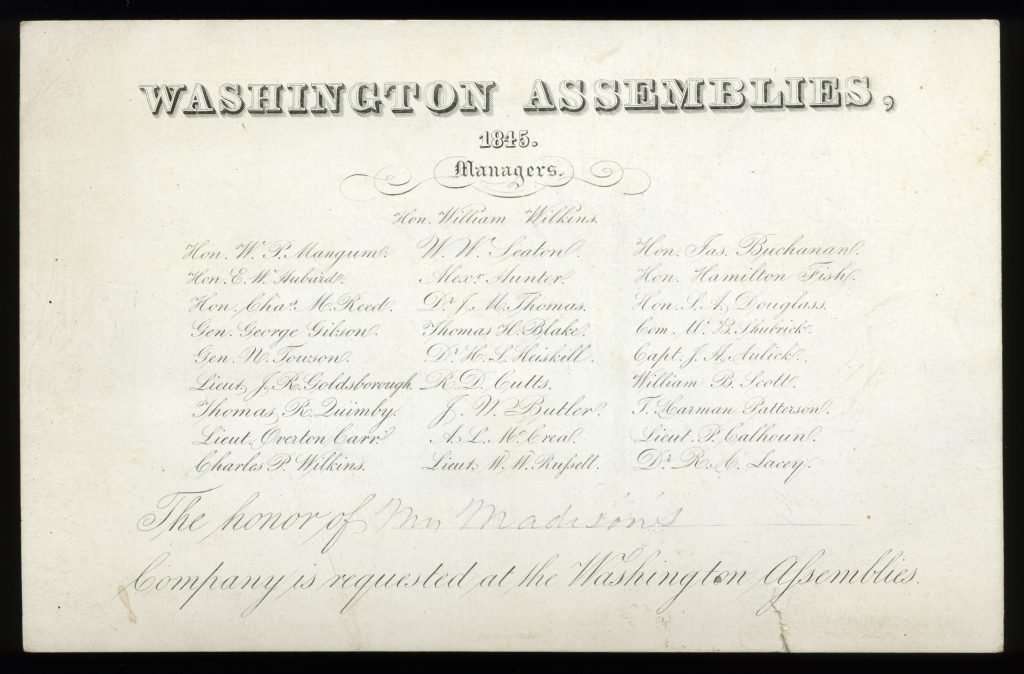 WASHINGTON ASSEMBLIES,
1845.
Managers.
Hon. William Wilkins.
Hon. W. P. Mangum. W. W. Seaton. Hon. Jas. Buchanan.
Hon. E. W. Hubard. Alexr. Hunter. Hon. Hamilton Fish.
Hon. Chas. M. Reed. Dr. J. M. Thomas. Hon. S. A. Douglass.
Gen. George Gibson. Thomas H. Blake. Com. W. B. Shubrick.
Gen. N. Towson. Dr. H. L. Heiskill. Capt. J. H. Aulick.
Lieut. J. R. Goldsborough. R. D. Cutts. William B. Scott.
Thomas R. Quimby. J. W. Butler. T. Harman Patterson.
Lieut. Overton Carr A. L. McCrea. Lieut. P. Calhoun.
Charles P. Wilkins. Lieut. W. W. Russell. Dr. R. C. Lacey.
The honor of Mrs Madison's
Company is requested at the Washington Assemblies.